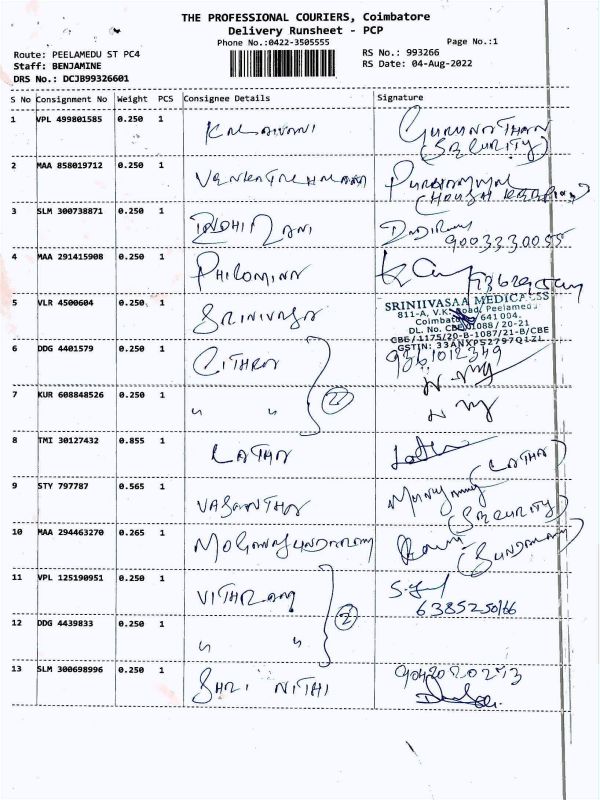 THE PROFESSIONAL COURIERS, Coimbatore
Delivery Runsheet - PCP
Phone No.:0422-3505555
Page No.:1
Route: PEELAMEDU ST PC4
RS No.: 993266
Staff: BENJAMINE
RS Date: 04-Aug-2022
DRS No.: DCJB99326601
S No Consignment No Weight PCS Consignee Details Signature
1 VPL 499801585 0.250 1 KALAIVANI GURUNATHAN
(SECURITY)
2 MAA 858019712 0.250 1
3 SLM 300738871 0.250 1 INDHIRANI
9003330055
4 MAA 291415908 0.250 1 PHILOMINA
5 VLR 4500604 0.250 1 SRINIVASA
SRINIIVASAA MEDICALSS
811-A, V.K. Road, Peelamedu
Coimbatore 641 004.
DL. No. CBE/1088 / 20-21
CBE/1175/20-B-1087/21-B/CBE
GSTIN: 33ANXPS2797Q1ZL
6 DDG 4401579 0.250 1 CITHRA 9361012349
7 KUR 608848526 0.250 1 " " (2)
8 TMI 30127432 0.855 1 LATHA Latha (LATHA)
9 STY 797787 0.565 1 VASANTHA
(SECURITY)
10 MAA 294463270 0.265 1 MOHANASUNDARAM (SUNDARAM)
11 VPL 125190951 0.250 1 VITHRAN
6385250166
12 DDG 4439833 0.250 1 " " (2)
13 SLM 300698996 0.250 1 SHRI NITHI 9042020273